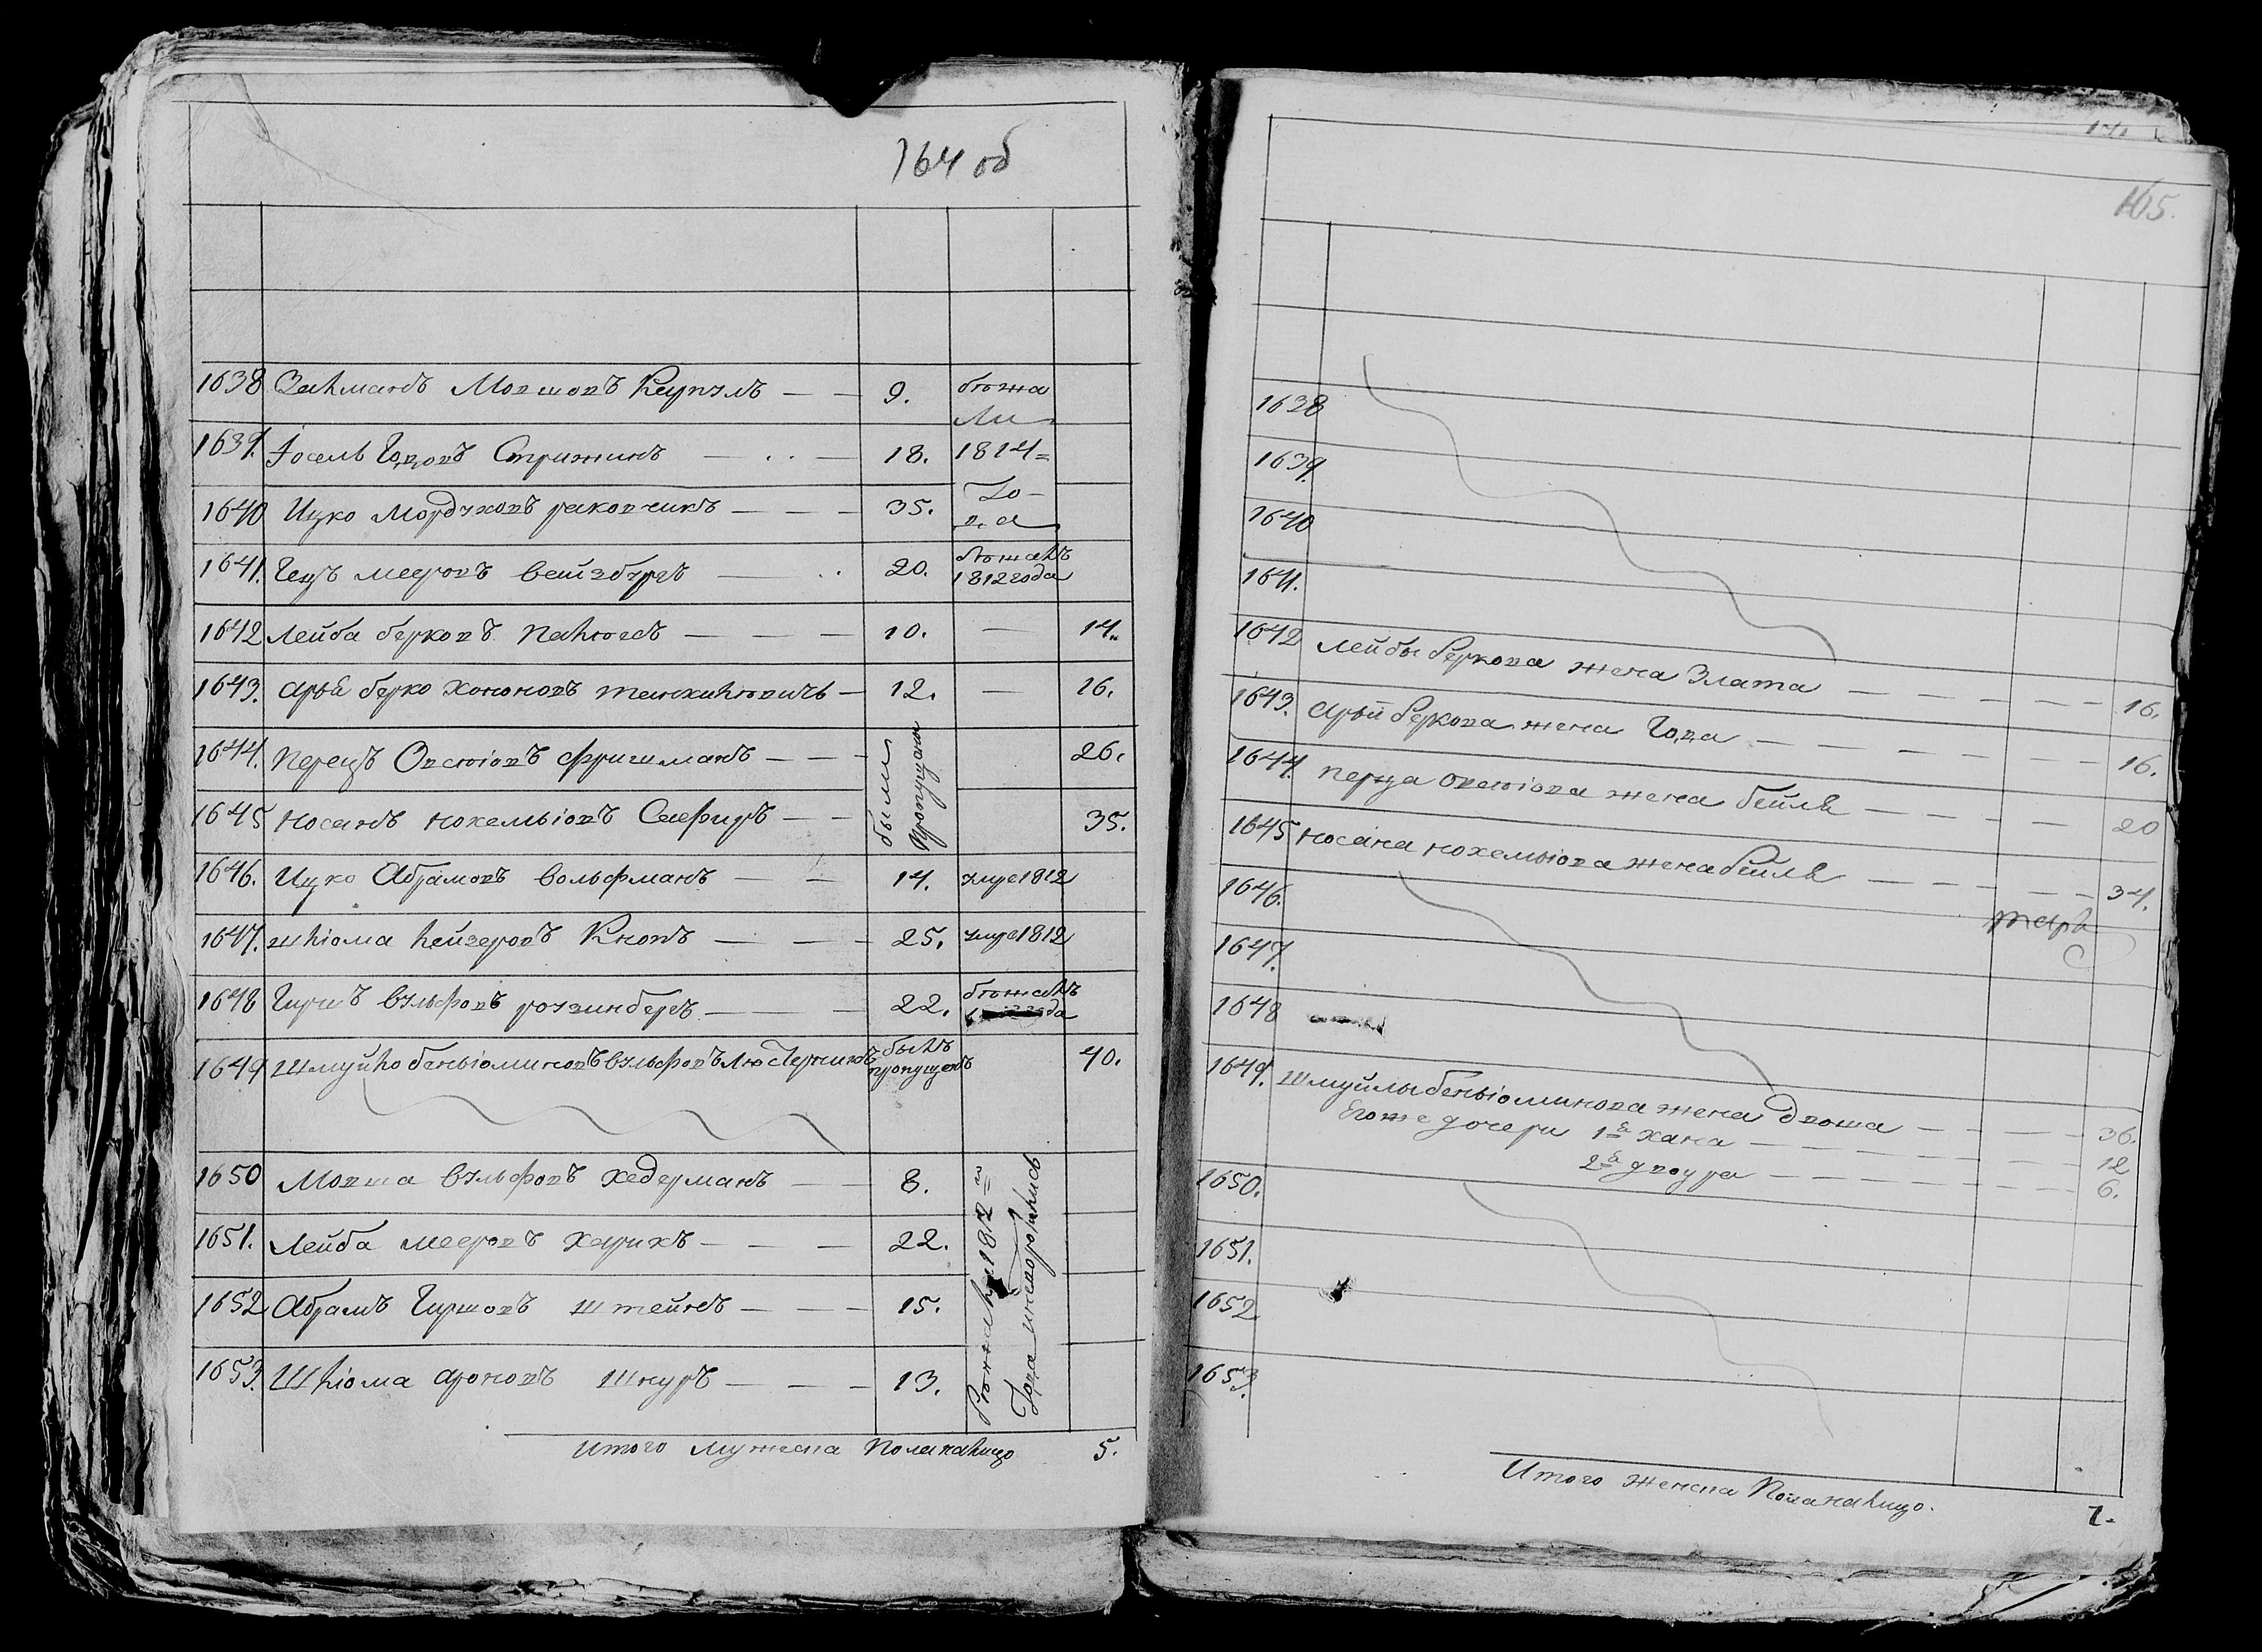 164 об
1638 Залманъ Мовшовъ Карпелъ — — 9. бѣжа
ли
1639. Іосель Говзовъ Стрижинъ — — 18. 1814=
1640 Ицко Мордуховъ раковчикъ — — — 35. Го-
да
1641. Гецъ мееровъ вейзбургъ — 20. бѣжалъ
1812 года
1642 Лейба берковъ — — — 10. — 14.
1643. арья берко хононовъ — 12. — 16.
1644. перецъ Овсѣіовъ фришманъ — — были пропущены 26.
1645 носанъ нохемьіовъ — — 35.
1646. Ицко Абрамовъ вольфманъ — — 14. умре 1812
1647. шліома лейзеровъ — — — 25. умре 1812
1648 Гиршъ вульфовъ розинбергъ — — — 22. бѣжалъ
года
1649 Шмуйло беньіоминовъ вульфовъ былъ пропущенъ 40.
1650 Мовша вульфовъ хедерманъ — — 8.
1651. Лейба мееровъ — — — 22.
1652 Абрамъ Гиршовъ штейнъ — — — 15.
1653. Шліома ароновъ шнуръ — — — 13.
итого мужеска Пола налицо 5.
165.
1638
1639.
1640
1641.
1642 Лейбы беркова жена Злата — — — — 16.
1643. арьи беркова жена — — — — — 16.
1644. перца овсѣіова жена бейля — — — — 20
1645 носана нохемьіова жена бейля — — — — — 34.
1646.
1647.
1648
1649. шмуйлы беньіоминова жена двоша — — — — 36.
Егоже дочери 1я хана — — — — — 12
2я двоура — — — — — 6.
1650.
1651.
1652
1653.
Итого женска Пола налицо. 7.